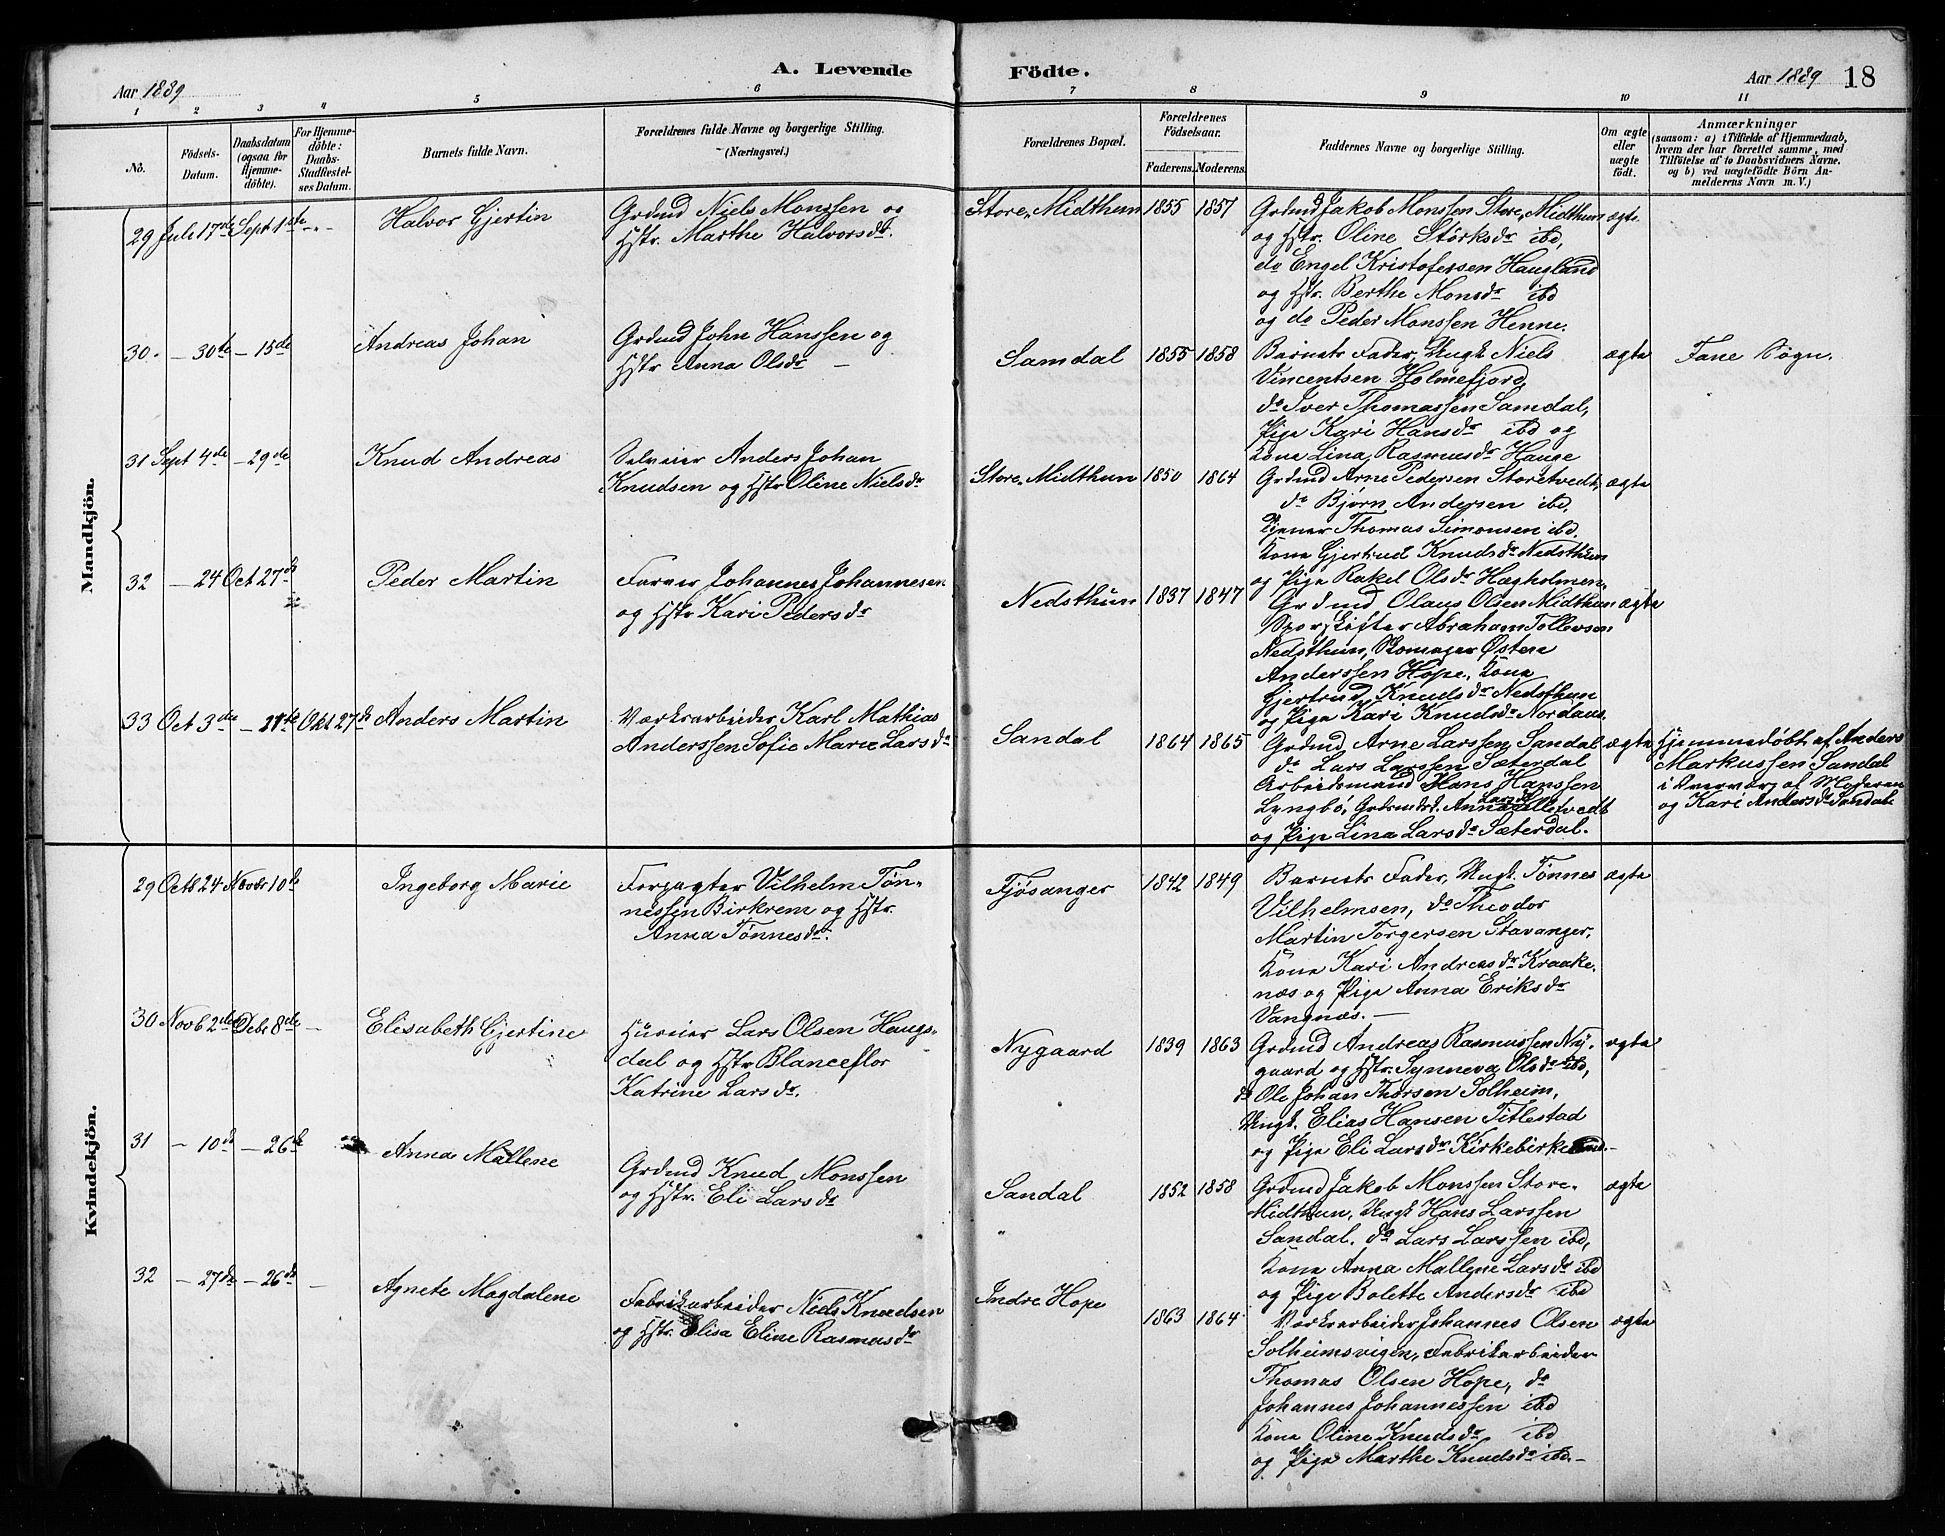 Aar 1889
A. Levende Födte.
Aar 1889 18
1 2 3 4 5 6 7 8 9 10 11
No.
Födsels-Datum.
Daabsdatum (ogsaa for Hjemme-döbte).
For Hjemme-döbte: Daabs-Stadfæstel-ses Datum.
Barnets fulde Navn.
Forældrenes fulde Navne og borgerlige Stilling.
(Næringsvei.)
Forældrenes Bopæl.
Forældrenes Födselsaar.
Faderens. Moderens.
Faddernes Navne og borgerlige Stilling.
Om ægte eller uægte födt.
Anmærkninger
(saasom: a) i Tilfælde af Hjemmedaab,
hvem der har forrettet samme, med
Tilföielse af to Daabsvidners Navne.
og b) ved uægtefödte Börn An-
melderens Navn m. V.)
Mandkjön.
29 Juli 17de Sept 1ste -"-
Halvor Gjertin
Grdmd Niels Monssen og
Hstr. Marthe Halvorsdr.
Store-Midthun 1855 1857
Grdmd Jakob Monssen Store-Midthun ægte
og Hstr. Oline Størksdr ibd,
do Engel Kristofersen Haugland
og Hstr. Berthe Monsdr ibd
og do Peder Monssen Henne.
30. — 30te — 15de
Andreas Johan
Grdmd John Hanssen og
Hstr Anna Olsdr —
Samdal 1855 1858
Barnets Fader, Ungk Niels ægte Fane Sogn.
Vincentsen Holmefjord,
do Iver Thomassen Samdal,
Pige Kari Hansdr ibd og
Kona Lina Rasmusdr Hauge
31 Sept 4de — 29de
Knud Andreas
Selveier Anders Johan
Knudsen og Hstr Oline Nielsdr
Store-Midthun 1850 1864
Grdmd Arne Pedersen Storetvedt, ægte
do Bjørn Andersen ibd.
Tjener Thomas Simonsen ibd.
Kona Gjertrud Knudsdr Nedsthun
og Pige Rakel Olsdr Hægholmen.
32 — 24 Oct 27de
Peder Martin
Farver Johannes Johannesen
og Hstr Kari Pedersdr
Nedsthun 1837 1847
Grdmd Olaus Olsen Midthun ægte
Sporskifter Abraham Tollevsen
Nedsthun, Skomager Østen
Anderssen Hope, Kona
Gjertrud Knudsdr Nedsthun
og Pige Kari Knudsdr Nordaas.
33 Oct 3de — Okt 27de
Anders Martin
Værksarbeider Karl Mathias
Anderssen Sofie Marie Larsdr
Sandal 1864 1865
Grdmd Arne Larssen Sandal ægte
do Lars Larssen Sæterdal
Arbeidsmand Hans Hanssen
Lyngbö, Grdmdsd. Anna Larsdr
og Pige Lina Larsdr Sæterdal.
Hjemmedøbt af Anders
Markussen Sandal
i Overvær af Moderen
og Kari Andersdr Sandal
Kvindekjön.
29 Octb 24 Novbr 10de
Ingeborg Marie
Forpagter Vilhelm Tøn-
nessen Birkrem og Hstr.
Anna Tønnesdr.
Fjøsanger 1842 1849
Barnets Fader, Ungk. Tønnes ægte
Vilhelmsen, do Theodor
Martin Torgersen Stavanger,
Kona Kari Andreasdr Kraake-
næs og Pige Anna Eriksdr
Vangnæs. —
30 Novb 2den Decbr 8de —
Elisabeth Gjertine
Huseier Lars Olsen Haugs-
dal og Hstr Blanceflor
Katrine Larsdr.
Nygaard 1839 1863
Grdmd Andreas Rasmussen Ny- ægte
gaard og Hstr. Synneva Olsdr ibd,
do Ole Johan Thorsen Solheim,
Ungk. Elias Hansen Titlestad
og Pige Eli Larsdr Kirkebirkeland.—
31 — 10de — 26de
Anna Mallene
Grdmd Knud Monssen
og Hstr. Eli Larsdr
Sandal 1852 1858
Grdmd Jakob Monssen Store- ægte
Midthun, Ungk Hans Larssen
Sandal. do Lars Larssen ibd,
Kona Anna Mallene Larsdr ibd
og Pige Bolette Andersdr ibd
32 — 27de — 26de —
Agnete Magdalene
Fabrikarbeider Niels Knudsen
og Hstr. Elisa Eline Rasmusdr
Indre Hope 1863 1864
Værksarbeider Johannes Olsen ægte
Solheimsvigen, Fabrikarbeider
Thomas Olsen Hope, do
Johannes Johannessen ibd
Kona Oline Knudsdr ibd
og Pige Marthe Knudsdr ibd.—